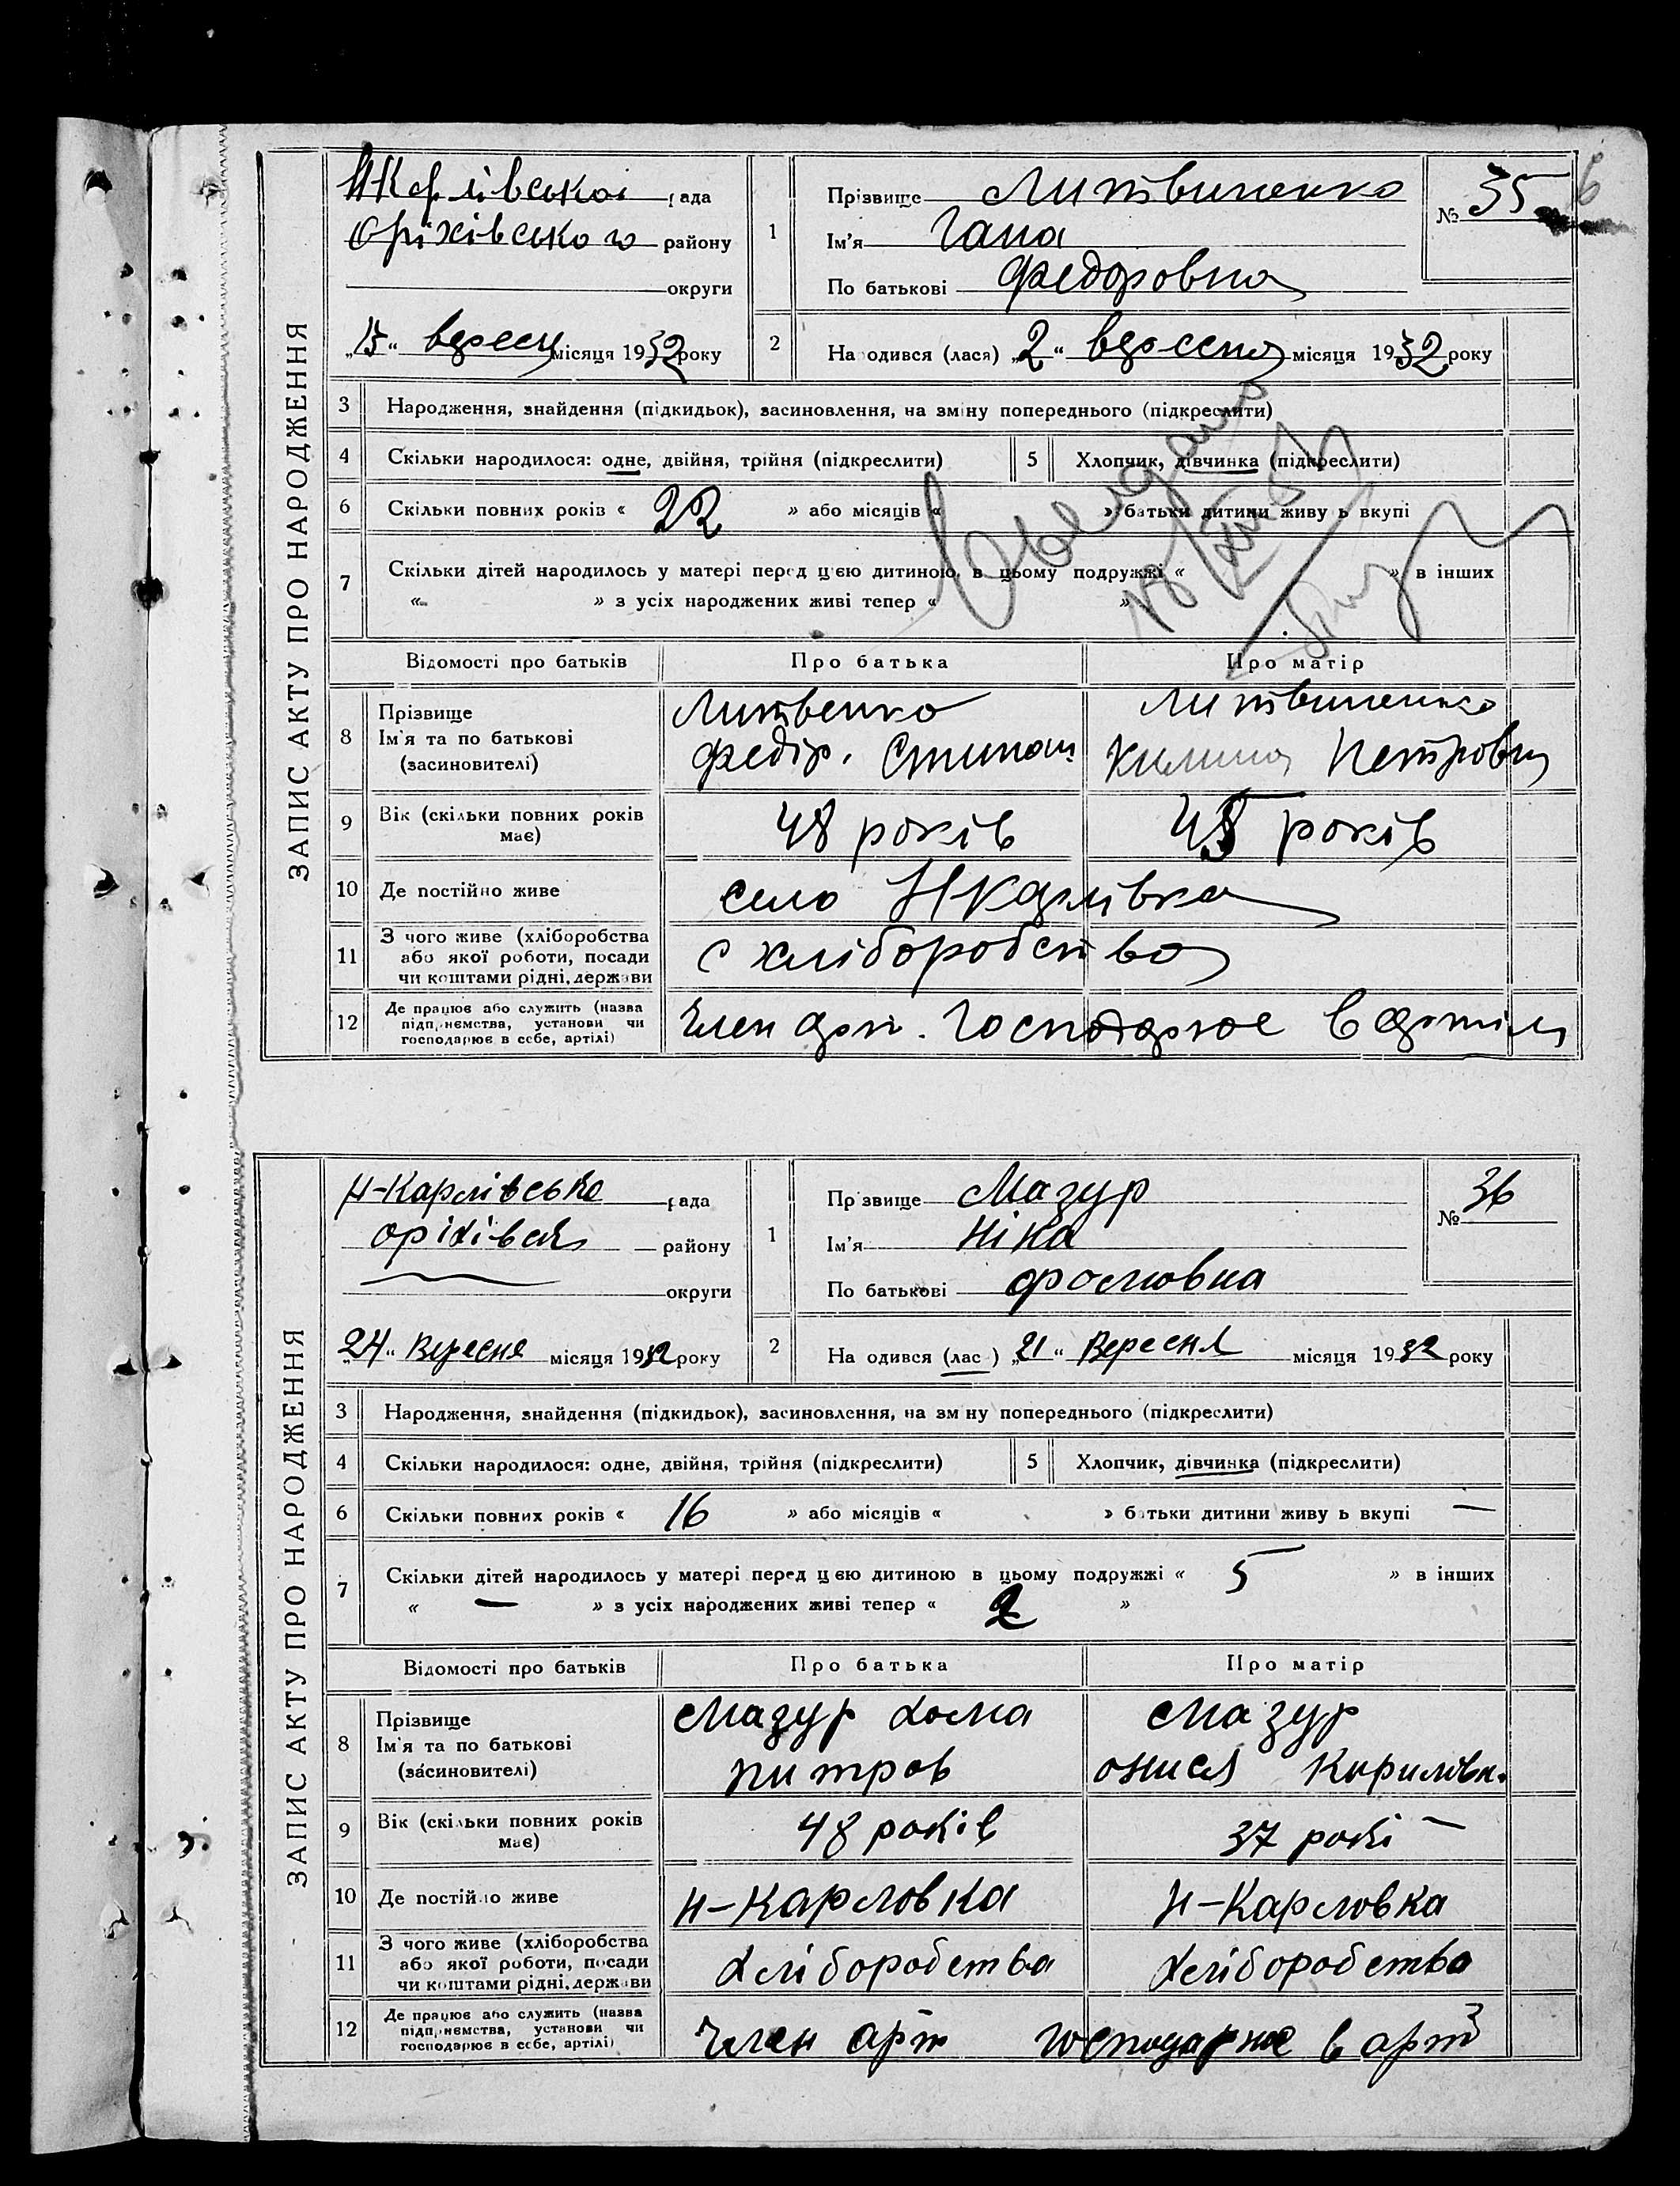 ЗАПИС АКТУ ПРО НАРОДЖЕННЯ
рада
Оріхівського району
округи
„15“ вересня місяця 1932 року
1
Прізвище Литвиненко
Ім'я Гана
По батькові Федоровна
№ 35
6
2
Народився (лася) „2“ вересня місяця 1932 року
3 Народження, знайдення (підкидьок), засиновлення, на зміну попереднього (підкреслити)
4 Скільки народилося: одне, двійня, трійня (підкреслити)
5 Хлопчик, дівчинка (підкреслити)
6 Скільки повних років « 22 » або місяців « » батьки дитини живуть вкупі
7 Скільки дітей народилось у матері перед цією дитиною в цьому подружжі « » в інших
« » з усіх народжених живі тепер « »
Відомості про батьків Про батька Про матір
8 Прізвище
Ім'я та по батькові
(засиновителі)
Литвенко
Федір. Степан
Литвиненко
Килина Петровна
9 Вік (скільки повних років
має)
48 років
45 років
10 Де постійно живе
село НКарлівка
11 З чого живе (хліборобства
або якої роботи, посади
чи коштами рідні, держави
с хліборобства
12 Де працює або служить (назва
підприємства, установи чи
господарює в себе, артілі)
Член арт. Господарює в артілі
ЗАПИС АКТУ ПРО НАРОДЖЕННЯ
Н-Карлівська рада
району
округи
„24“ Вересня місяця 1932 року
1
Прізвище Мазур
Ім'я Ніна
По батькові Фомовна
№ 36
2
Народився (лась) „21“ Вересня місяця 1932 року
3 Народження, знайдення (підкидьок), засиновлення, на зміну попереднього (підкреслити)
4 Скільки народилося: одне, двійня, трійня (підкреслити)
5 Хлопчик, дівчинка (підкреслити)
6 Скільки повних років « 16 » або місяців « » батьки дитини живуть вкупі —
7 Скільки дітей народилось у матері перед цією дитиною в цьому подружжі « 5 » в інших
« — » з усіх народжених живі тепер « 2 »
Відомості про батьків Про батька Про матір
8 Прізвище
Ім'я та по батькові
(засиновителі)
Мазур Хома
питров
Мазур
онися Кириловн.
9 Вік (скільки повних років
має)
48 років
37 рокі —
10 Де постійно живе
Н-Карловка
Н-Карловка
11 З чого живе (хліборобства
або якої роботи, посади
чи коштами рідні, держави
Хліборобства
Хліборобства
12 Де працює або служить (назва
підприємства, установи чи
господарює в себе, артілі)
Член арт господарює в арт